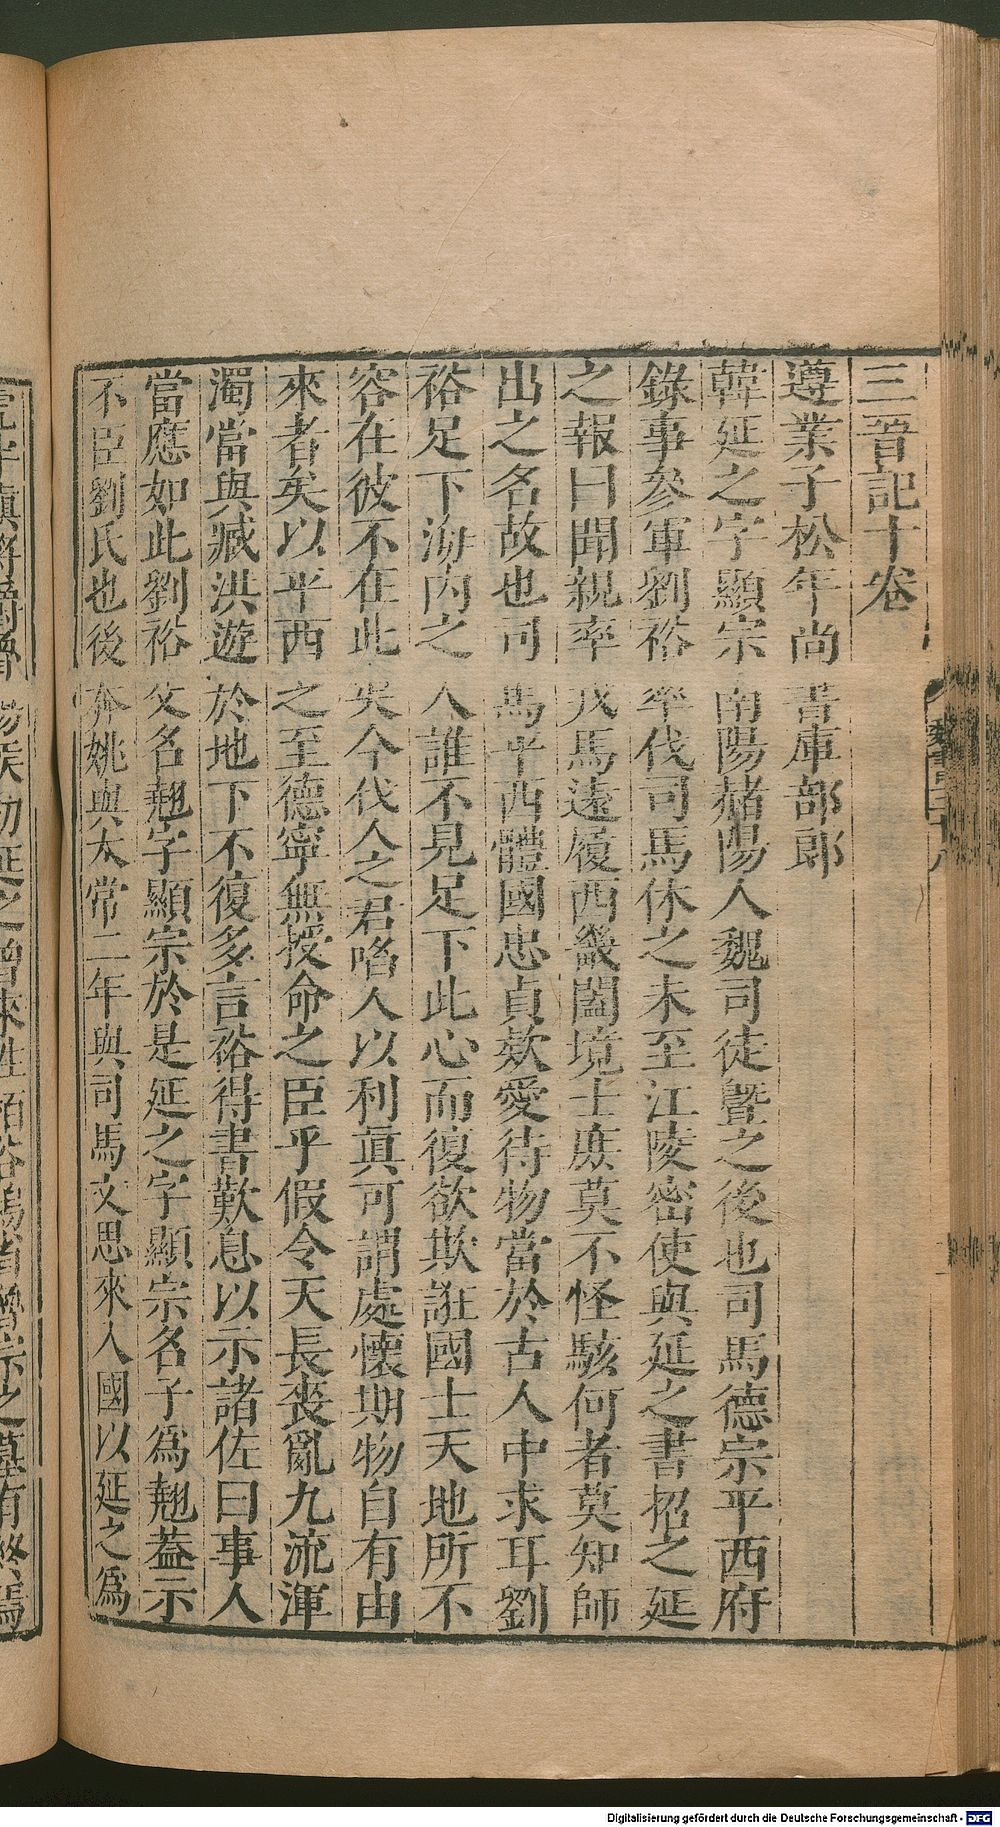 三晉記十卷
遵業子松年尚書庫部郎
韓延之字顯宗南陽赭陽人魏司徒曁之後也司馬德宗平西府
錄事參軍劉裕率伐司馬休之未至江陵密使與延之書招之延
之報曰聞親率戎馬遠履西畿闔境士庶莫不怪駭何者莫知師
出之名故也司馬平西體國忠貞欵愛待物當於古人中求耳劉
裕足下海内之人誰不見足下此心而復欲欺誑國士天地所不
容在彼不在此矣今伐人之君啗人以利真可謂處懷期物自有由
來者矣以平西之至德寧無授命之臣乎假令天長喪亂九流渾
濁當與臧洪遊於地下不復多言裕得書歎息以示諸佐曰事人
當應如此劉裕父名翹字顯宗於是延之字顯宗名子爲翹蓋示
不臣劉氏也後奔姚與太常二年與司馬文思來入國以延之爲
Digitalisierung gefördert durch die Deutsche Forschungsgemeinschaft - DFG